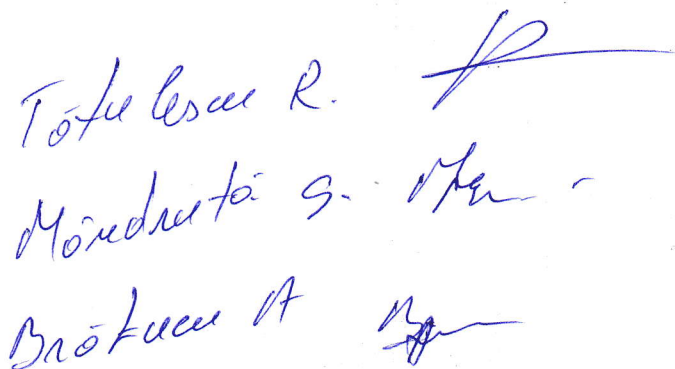 Tătulescu R.
Măndruță G.
Brătucu A